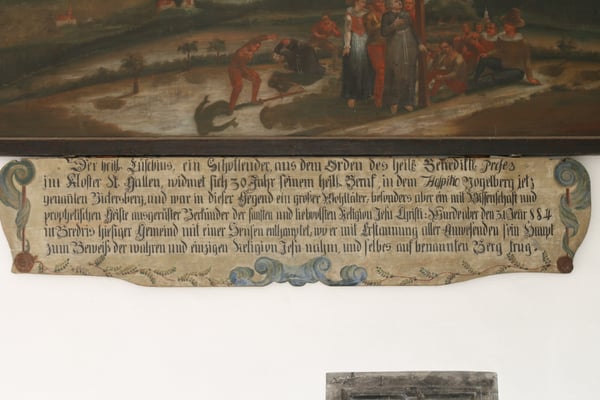 Der heilg. Eusebius, ein Schottender, aus dem Orden des heilg. Benedikti
im Kloster St. Gallen, widmet sich 30 Jahr seinem heilg. Beruf, in dem Hospitio Vogelberg jetz
genanten Victersberg, und war in dieser Gegend ein großer Wohlthäter, besonders aber ein mit Wissenschaft und
prophetischen Geiste ausgerüster Verkünder der sanften und liebvollsten Religion Jesu Christi: Wurde aber den 31 Jenr 884
in Brederis hiesiger Gemeind mit einer Sensen enthauptet, wo er mit Erstaunung aller Anwesenden sein Haupt
zum Beweiß der wahren und einzigen Religion Jesu nahm, und selbes auf benannten Berg trug.